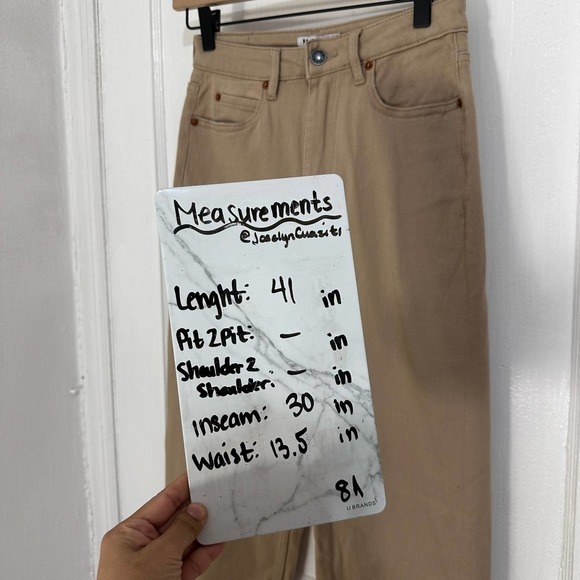 Measurements
Lenght: 41 in
Pit 2 Pit: — in
Shoulder 2
Shoulder: — in
inseam: 30 in
Waist: 13.5 in
81
U BRANDS